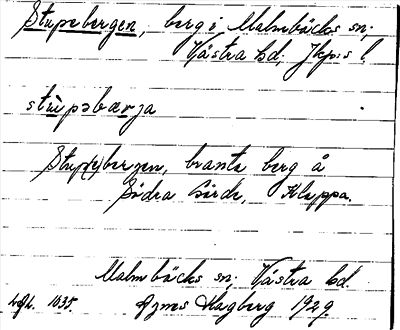 Stupebergen, berg i Malmbäcks sn;
Västra hd; Jkp:s l.
stù̄pəbærja
Stup(e)bergen, branta berg å
Södra Gärde, Klappa.
Malmbäcks sn; Västra hd.
1035. Agnes Hagberg 1929.